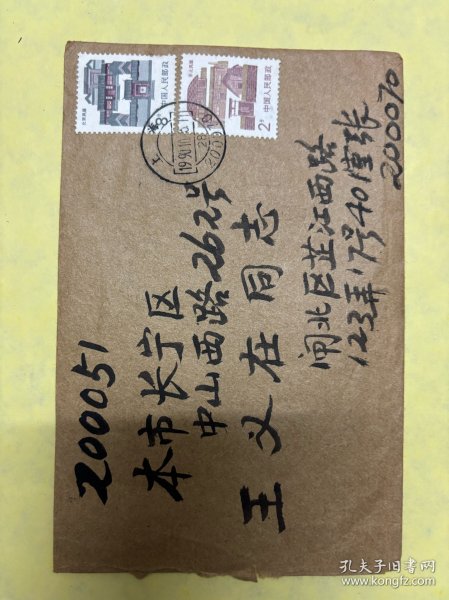 200051
本市长宁区
中山西路262号
王义在同志
闸北区芷江西路
123弄17号40室张
200070
中国人民邮政
中国人民邮政
2分
上海
1990.11.
孔夫子旧书网
www.kongfz.com